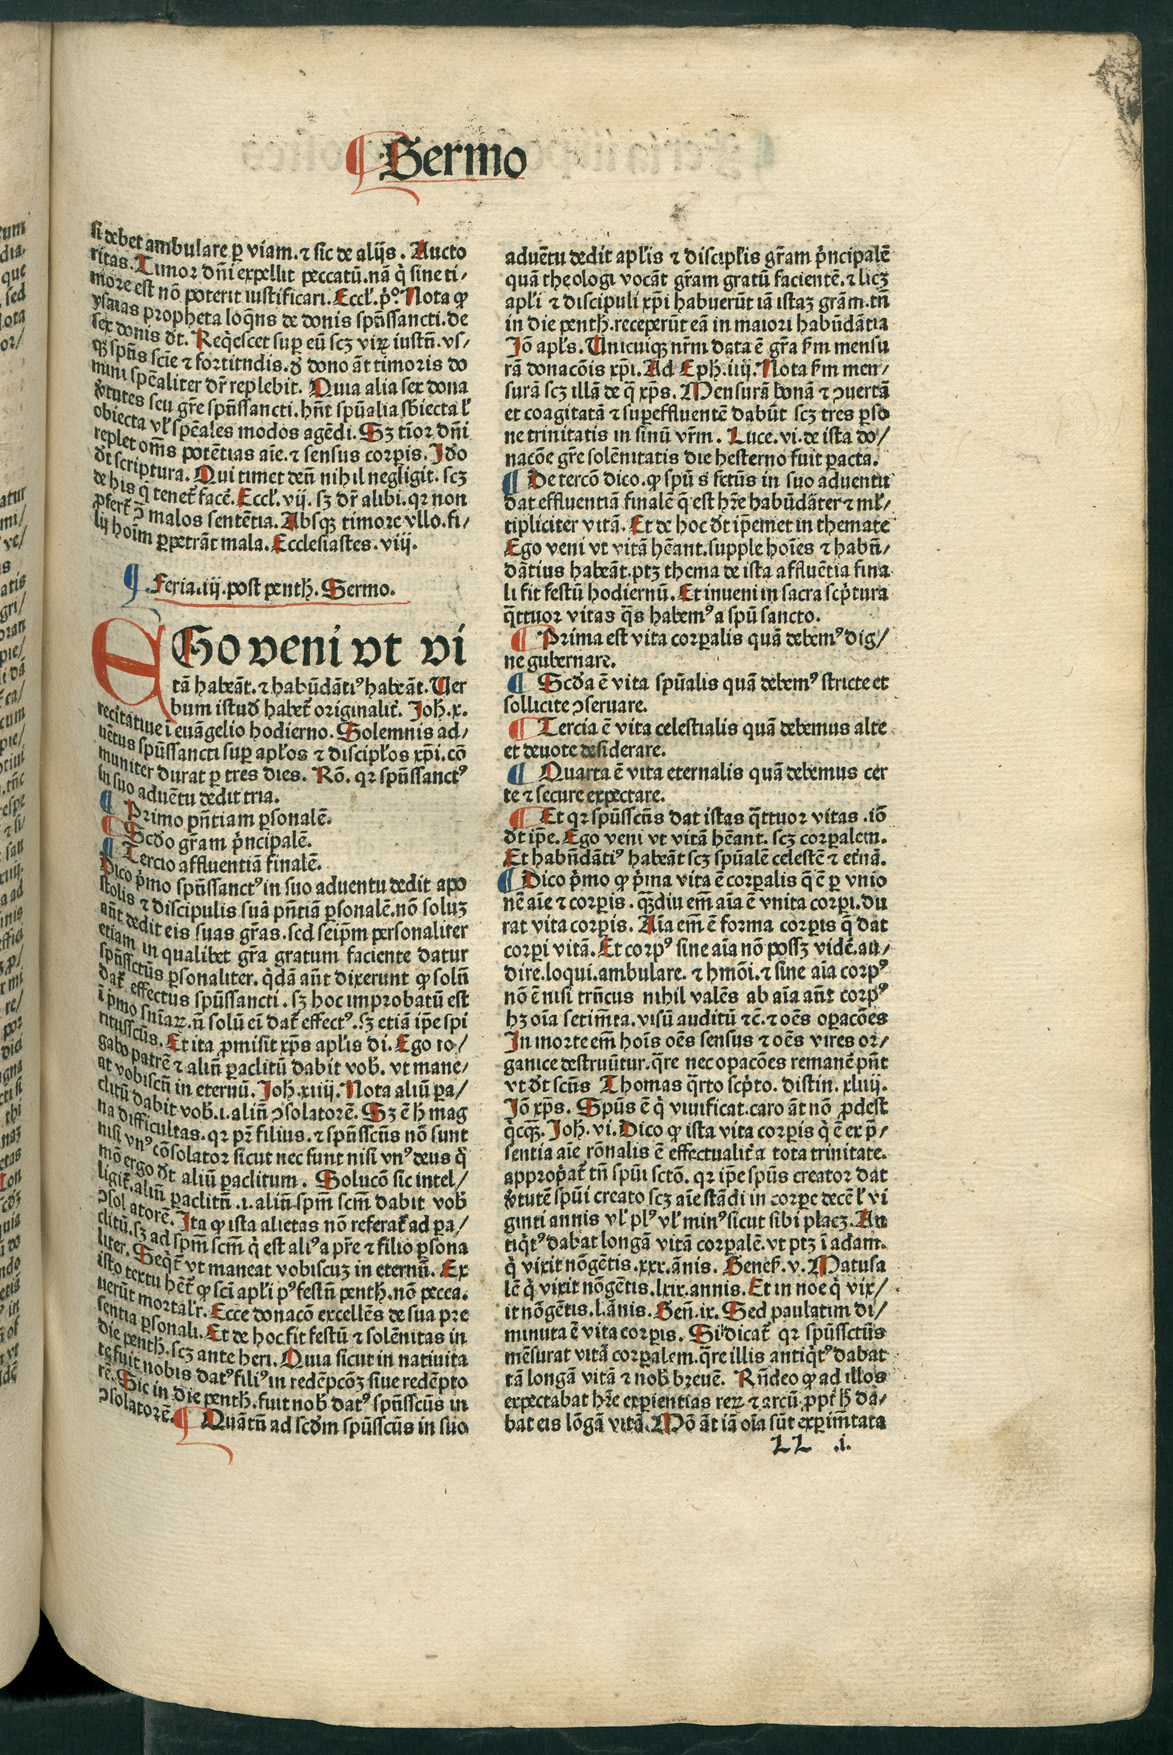 Sermo
si debet ambulare ꝑ viam. ⁊ sic de alijs. Aucto
ritas. Timor dñi expellit peccatũ. nã q̇ sine ti/
more est nõ poterit iustificari. Eccl̃. p̃º. Nota ꝙ
ysaias propheta loq̃ns de donis spũssancti. de
sex donis dt̃. Req̃escet suꝑ eũ scꝫ viꝝ iustũ. vs/
qꝫ spũs scie ⁊ fortitndis. ꝺ dono ãt timoris do
mini spẽaliter dr̃ replebit. Quia alia sex dona
ṽtutes seu gr̃e spũssancti. hñt spũalia sb̃iecta ł
obiecta vł spẽales modos agẽdi. Sꝫ tĩor dñi
replet oẽs potẽtias aĩe. ⁊ sensus corꝑis. Jdo
dt̃ scriptura. Qui timet deũ nihil negligit. scꝫ
de his q̃ tenet̃ facẽ. Eccł. vij. sꝫ dr̃ alibi. qꝛ non
ꝓfert̃ ꝯ malos sentẽtia. Absqꝫ timore vllo. fi/
lij hoĩm ꝑpetrãt mala. Ecclesiastes. viij.
¶ Feria. iij. post penth̃. Sermo.
EGo veni vt vi
tã habeãt. ⁊ habũdãtiꝰ habeãt. Uer
bum istud habet̃ originalit̃. Joh̃. x.
recitatiue ĩ euãgelio hodierno. Solemnis ad/
uẽtus spũssancti suꝑ apłos ⁊ discipłos xp̃i. cõ
muniter durat ꝑ tres dies. Rõ. qꝛ spũssanctꝰ
in suo aduẽtu dedit tria.
¶ Primo pñtiam ꝑsonalẽ.
¶ Scdo gr̃am p̃ncipalẽ.
¶ Tercio affluentiã finalẽ.
Dico p̃mo spũssanctꝰ in suo aduentu dedit apo
stolis ⁊ discipulis suã pñtiã ꝑsonalẽ. nõ soluꝫ
añt dedit eis suas gr̃as. sed seip̃m personaliter
etiam in qualibet gr̃a gratum faciente datur
spũssctũs ꝑsonaliter. q̇dã añt dixerunt ꝙ solũ
dat̃ effectus spũssancti. sꝫ hoc improbatũ est
ĩ p̃mo sniaꝝ. ñ solũ ei dat̃ effectꝰ. sꝫ etiã ip̃e spi
ritusscũs. Et ita ꝓmisit xp̃s apłis di. Ego ro/
gabo patrẽ ⁊ aliũ ꝑaclitũ dabit vob̃. vt mane/
at vobiscũ in eternũ. Joh̃. xiiij. Nota aliũ ꝑa/
clitũ dabit vob̃. i. aliũ ꝯsolatorẽ. Sꝫ ẽ h̃ mag
na difficultas. qꝛ pr̃ filius. ⁊ spũsscũs nõ sunt
nisi vnꝰ cõsolator sicut nec sunt nisi vnꝰ deus q̇
mõ ergo dt̃ aliũ ꝑaclitum. Solucõ sic intel/
ligit̃. aliũ ꝑaclitũ. i. aliũ spm̃ scm̃ dabit vob̃
ꝯsolatorẽ. Jta ꝙ ista alietas nõ referat̃ ad ꝑa/
clitũ. sꝫ ad spm̃ scm̃ q̇ est aliꝰ a pr̃e ⁊ filio ꝑsona
liter. Seq̃t̃ vt maneat vobiscuꝫ in eternũ. Ex
isto textu hẽt̃ ꝙ scĩ apłi pꝰ festũ penth̃. nõ pecca.
uerũt mortalr̃. Ecce donacõ excellẽs de sua pre
sentia ꝑsonali. Et de hoc fit festũ ⁊ solẽnitas in
die penth̃. scꝫ ante heri. Quia sicut in natiuita
te fuit nobis datꝰ filiꝰ in redẽpcõꝫ siue redẽpto
re. Sic in die penth̃. fuit nob̃ datꝰ spũsscũs in
ꝯsolatorẽ. ¶ Quãtũ ad scdm spũsscũs in suo
aduẽtu dedit apłis ⁊ discipłis gr̃am p̃ncipalẽ
quã theologi vocãt gr̃am gratũ facientẽ. ⁊ licꝫ
apłi ⁊ discipuli xp̃i habuerũt iã istaꝫ grãm. tñ
in die penth̃. receperũt eã in maiori habũdãtia
Jõ apłs. Unicuiqꝫ nr̃m data ẽ gr̃a ẜm mensu
rã donacõis xp̃i. Ad Eph̃. iiij. Nota ẜm men/
surã scꝫ illã de q̃ xp̃s. Mensurã bonã ⁊ ꝯuertã
et coagitatã ⁊ suꝑeffluentẽ dabũt scꝫ tres ꝑso
ne trinitatis in sinũ vr̃m. Luce. vi. de ista do/
nacõe gr̃e solẽnitatis die hesterno fuit ꝑacta.
¶ De tercõ dico. ꝙ spũs sctũs in suo aduentu
dat effluentiã finalẽ q̃ est hr̃e habũdãter ⁊ mł/
tipliciter vitã. Et de hoc dt̃ ip̃emet in themate
Ego veni vt vitã hẽant. supple hoĩes ⁊ habũ/
dãtius habeãt. ptꝫ thema de ista affluẽtia fina
li fit festũ hodiernũ. Et inueni in sacra scp̃tura
q̃ttuor vitas q̃s habemꝰ a spũ sancto.
¶ Prima est vita corꝑalis quã debemꝰ dig/
ne gubernare.
¶ Scda ẽ vita spũalis quã debemꝰ stricte et
sollicite ꝯseruare.
¶ Tercia ẽ vita celestialis quã debemus alte
et deuote desiderare.
¶ Quarta ẽ vita eternalis quã debemus cer
te ⁊ secure expectare.
¶ Et qꝛ spũsscũs dat istas q̃ttuor vitas. iõ
dt ip̃e. Ego veni vt vitã hẽant. scꝫ corꝑalem.
Et habũdãtiꝰ habeãt scꝫ spũalẽ celestẽ ⁊ etnã.
¶ Dico p̃mo ꝙ p̃ma vita ẽ corꝑalis q̃ ẽ ꝑ vnio
nẽ aĩe ⁊ corꝑis. qꝫdiu em̃ aĩa ẽ vnita corꝑi. du
rat vita corꝑis. Aĩa em̃ ẽ forma corꝑis q̃ dat
corꝑi vitã. Et corpꝰ sine aĩa nõ possꝫ vidẽ. au/
dire. loqui. ambulare. ⁊ hmõi. ⁊ sine aĩa corpꝰ
nõ ẽ nisi trũcus nihil valẽs ab aĩa añt corpꝰ
hꝫ oĩa setimẽta. visũ auditũ ⁊c̃. ⁊ oẽs oꝑacões
Jn morte em̃ hoĩs oẽs sensus ⁊ oẽs vires or/
ganice destruũtur. q̃re nec oꝑacões remanẽ pñt
vt dt̃ scũs Thomas q̃rto scp̃to. distin. xliiij.
Jõ xp̃s. Spũs ẽ q̇ viuificat. caro ãt nõ ꝓdest
q̇cqꝫ. Joh̃. vi. Dico ꝙ ista vita corꝑis q̃ ẽ ex p̃/
sentia aĩe rõnalis ẽ effectualit̃ a tota trinitate.
appropat̃ tñ spũi sctõ. qꝛ ip̃e spũs creator dat
ṽtutẽ spũi creato scꝫ aĩe stãdi in corꝑe decẽ ł vi
ginti annis vł plꝰ vł minꝰ sicut sibi placꝫ. An
tiq̇tꝰ dabat longã vitã corꝑalẽ. vt ptꝫ ĩ adam.
q̇ vixit nõgẽtis. xxx. ãnis. Geneẜ. v. Matusa
lẽ q̇ vixit nõgẽtis. lxix. annis. Et in noe q̇ vix/
it nõgẽtis. l. ãnis. Geñ. ix. Sed paulatim di/
minuta ẽ vita corꝑis. Si dicat̃ qꝛ spũssctũs
mẽsurat vitã corꝑalem. q̃re illis antiq̇tꝰ dabat
tã longã vitã ⁊ nob̃ breuẽ. Rñdeo ꝙ ad illos
expectabat hr̃e exꝑientias reꝝ ⁊ arcũ. ꝓpt̃ h̃ da/
bat eis lõgã vitã. Mõ ãt iã oĩa sũt exꝑimẽtata
LL .i.